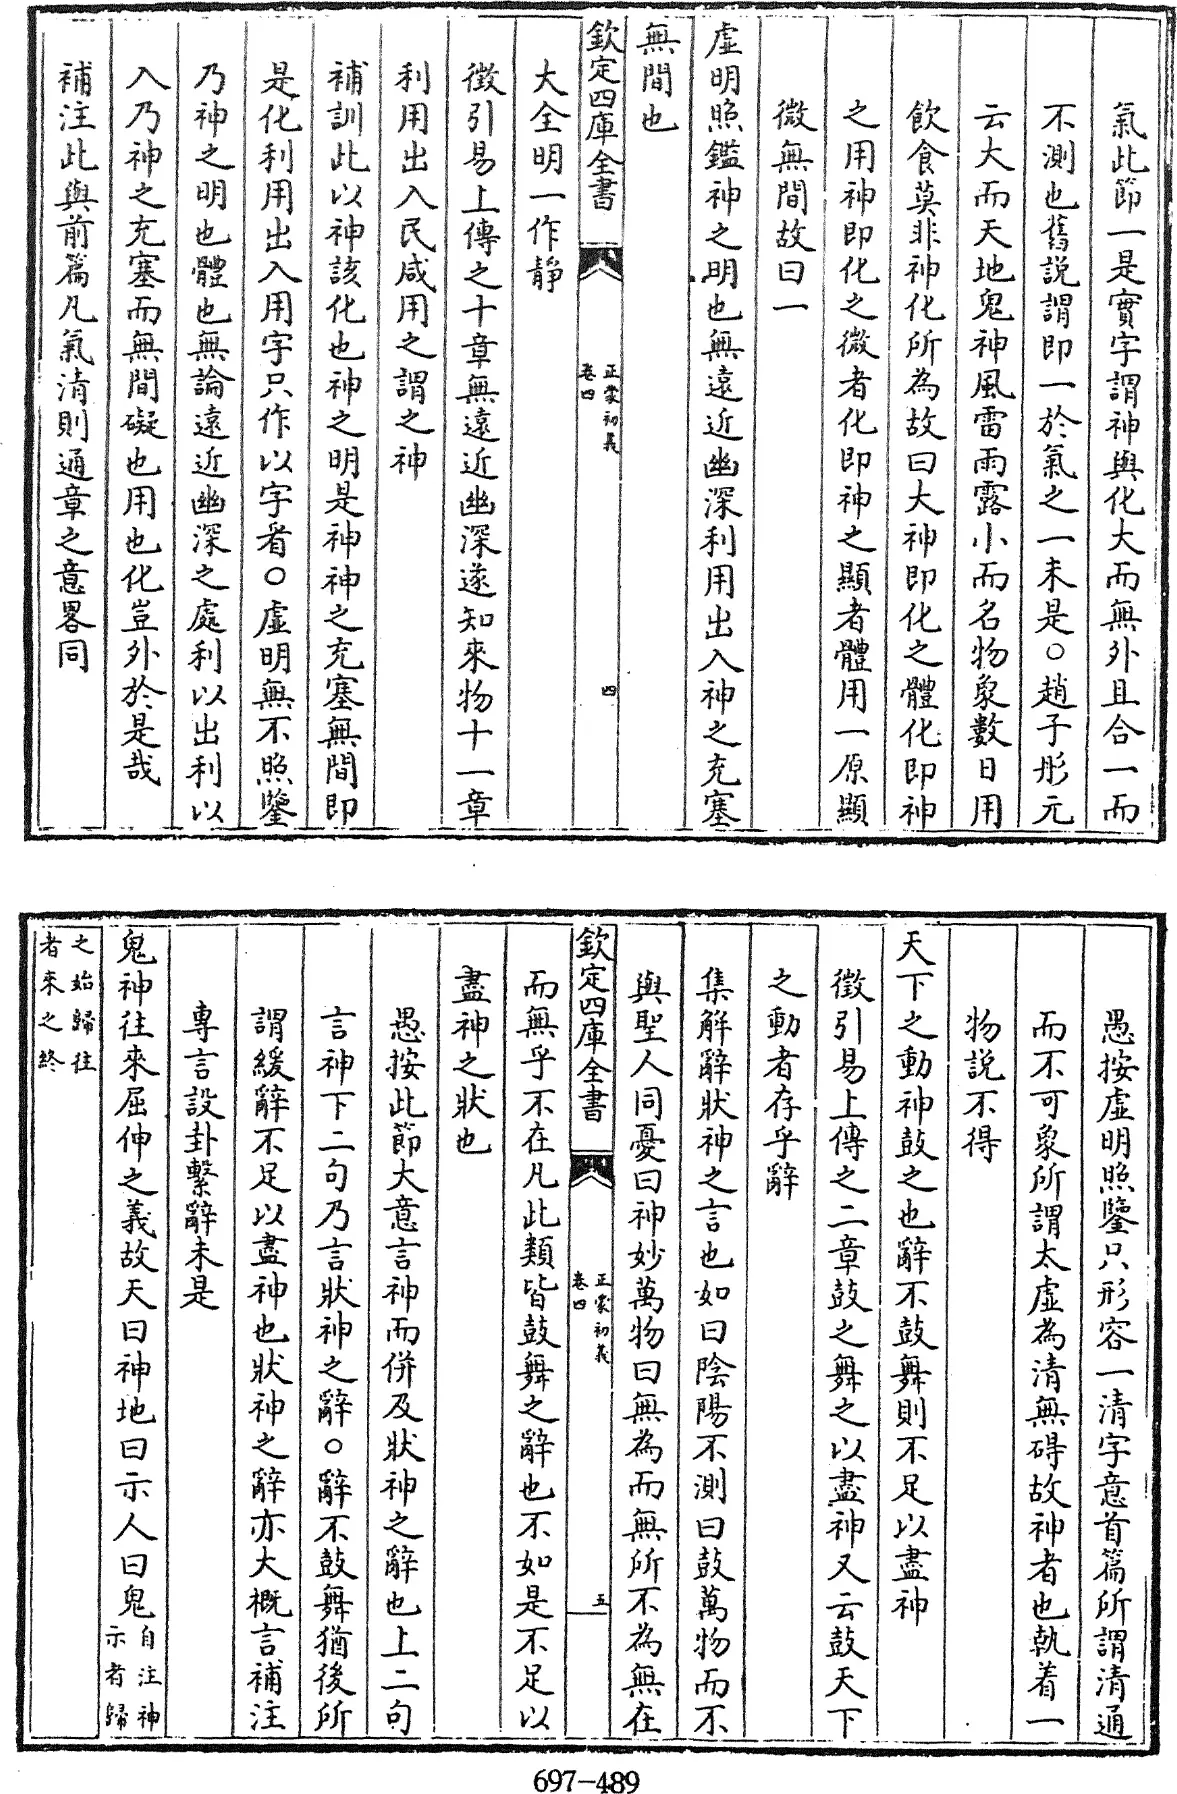 氣此節一是實字謂神與化大而無外且合一而
不測也舊說謂即一於氣之一未是○趙子彤元
云大而天地鬼神風雷雨露小而名物象數日用
飲食莫非神化所為故曰大神即化之體化即神
之用神即化之微者化即神之顯者體用一原顯
微無間故曰一
虛明照鑑神之明也無遠近幽深利用出入神之充塞
無間也
欽定四庫全書
正蒙初義
卷四
四
大全明一作靜
徵引易上傳之十章無遠近幽深遂知來物十一章
利用出入民咸用之謂之神
補訓此以神該化也神之明是神神之充塞無間即
是化利用出入用字只作以字看○虛明無不照鑒
乃神之明也體也無論遠近幽深之處利以出利以
入乃神之充塞而無間礙也用也化豈外於是哉
補注此與前篇凡氣清則通章之意畧同
愚按虛明照鑒只形容一清字意首篇所謂清通
而不可象所謂太虛為清無碍故神者也執着一
物說不得
天下之動神鼓之也辭不鼓舞則不足以盡神
徵引易上傳之二章鼓之舞之以盡神又云鼓天下
之動者存乎辭
集解辭狀神之言也如曰陰陽不測曰鼓萬物而不
與聖人同憂曰神妙萬物曰無為而無所不為無在
欽定四庫全書
正蒙初義
卷四
五
而無乎不在凡此類皆鼓舞之辭也不如是不足以
盡神之狀也
愚按此節大意言神而併及狀神之辭也上二句
言神下二句乃言狀神之辭○辭不鼓舞猶後所
謂緩辭不足以盡神也狀神之辭亦大概言補注
專言設卦繫辭未是
鬼神往來屈伸之義故天曰神地曰示人曰鬼
自注神
示者歸
之始歸往
者來之終
697-489